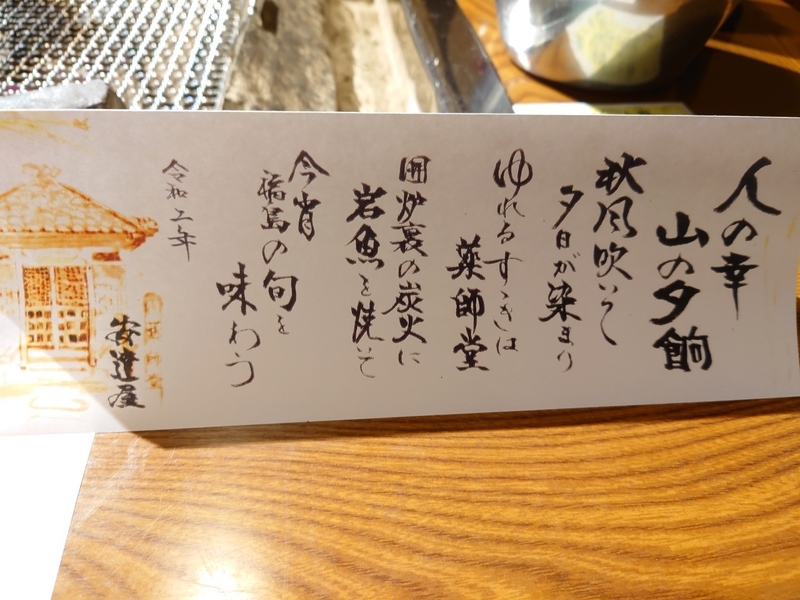 人の幸
山の夕餉
秋風吹いて
夕日が染まり
ゆれるすゝきは
薬師堂
囲炉裏の炭火に
岩魚を焼いて
今宵
福島の旬を
味わう
令和二年
安達屋